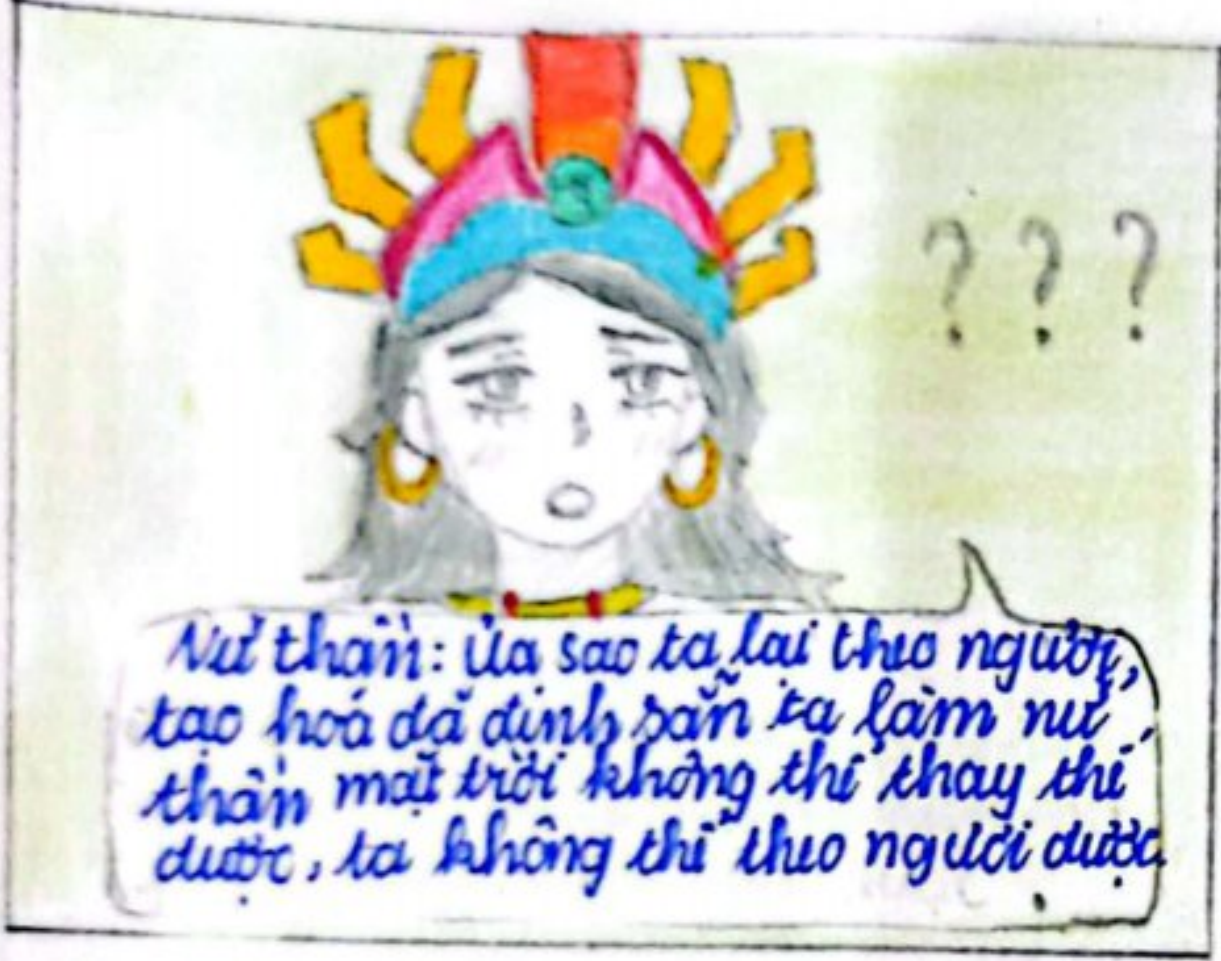 ? ? ?
Nữ thần: ủa sao ta lại theo người,
tạo hoá đã định sẵn ta làm nữ
thần mặt trời không thể thay thế
được, ta không thể theo người được.